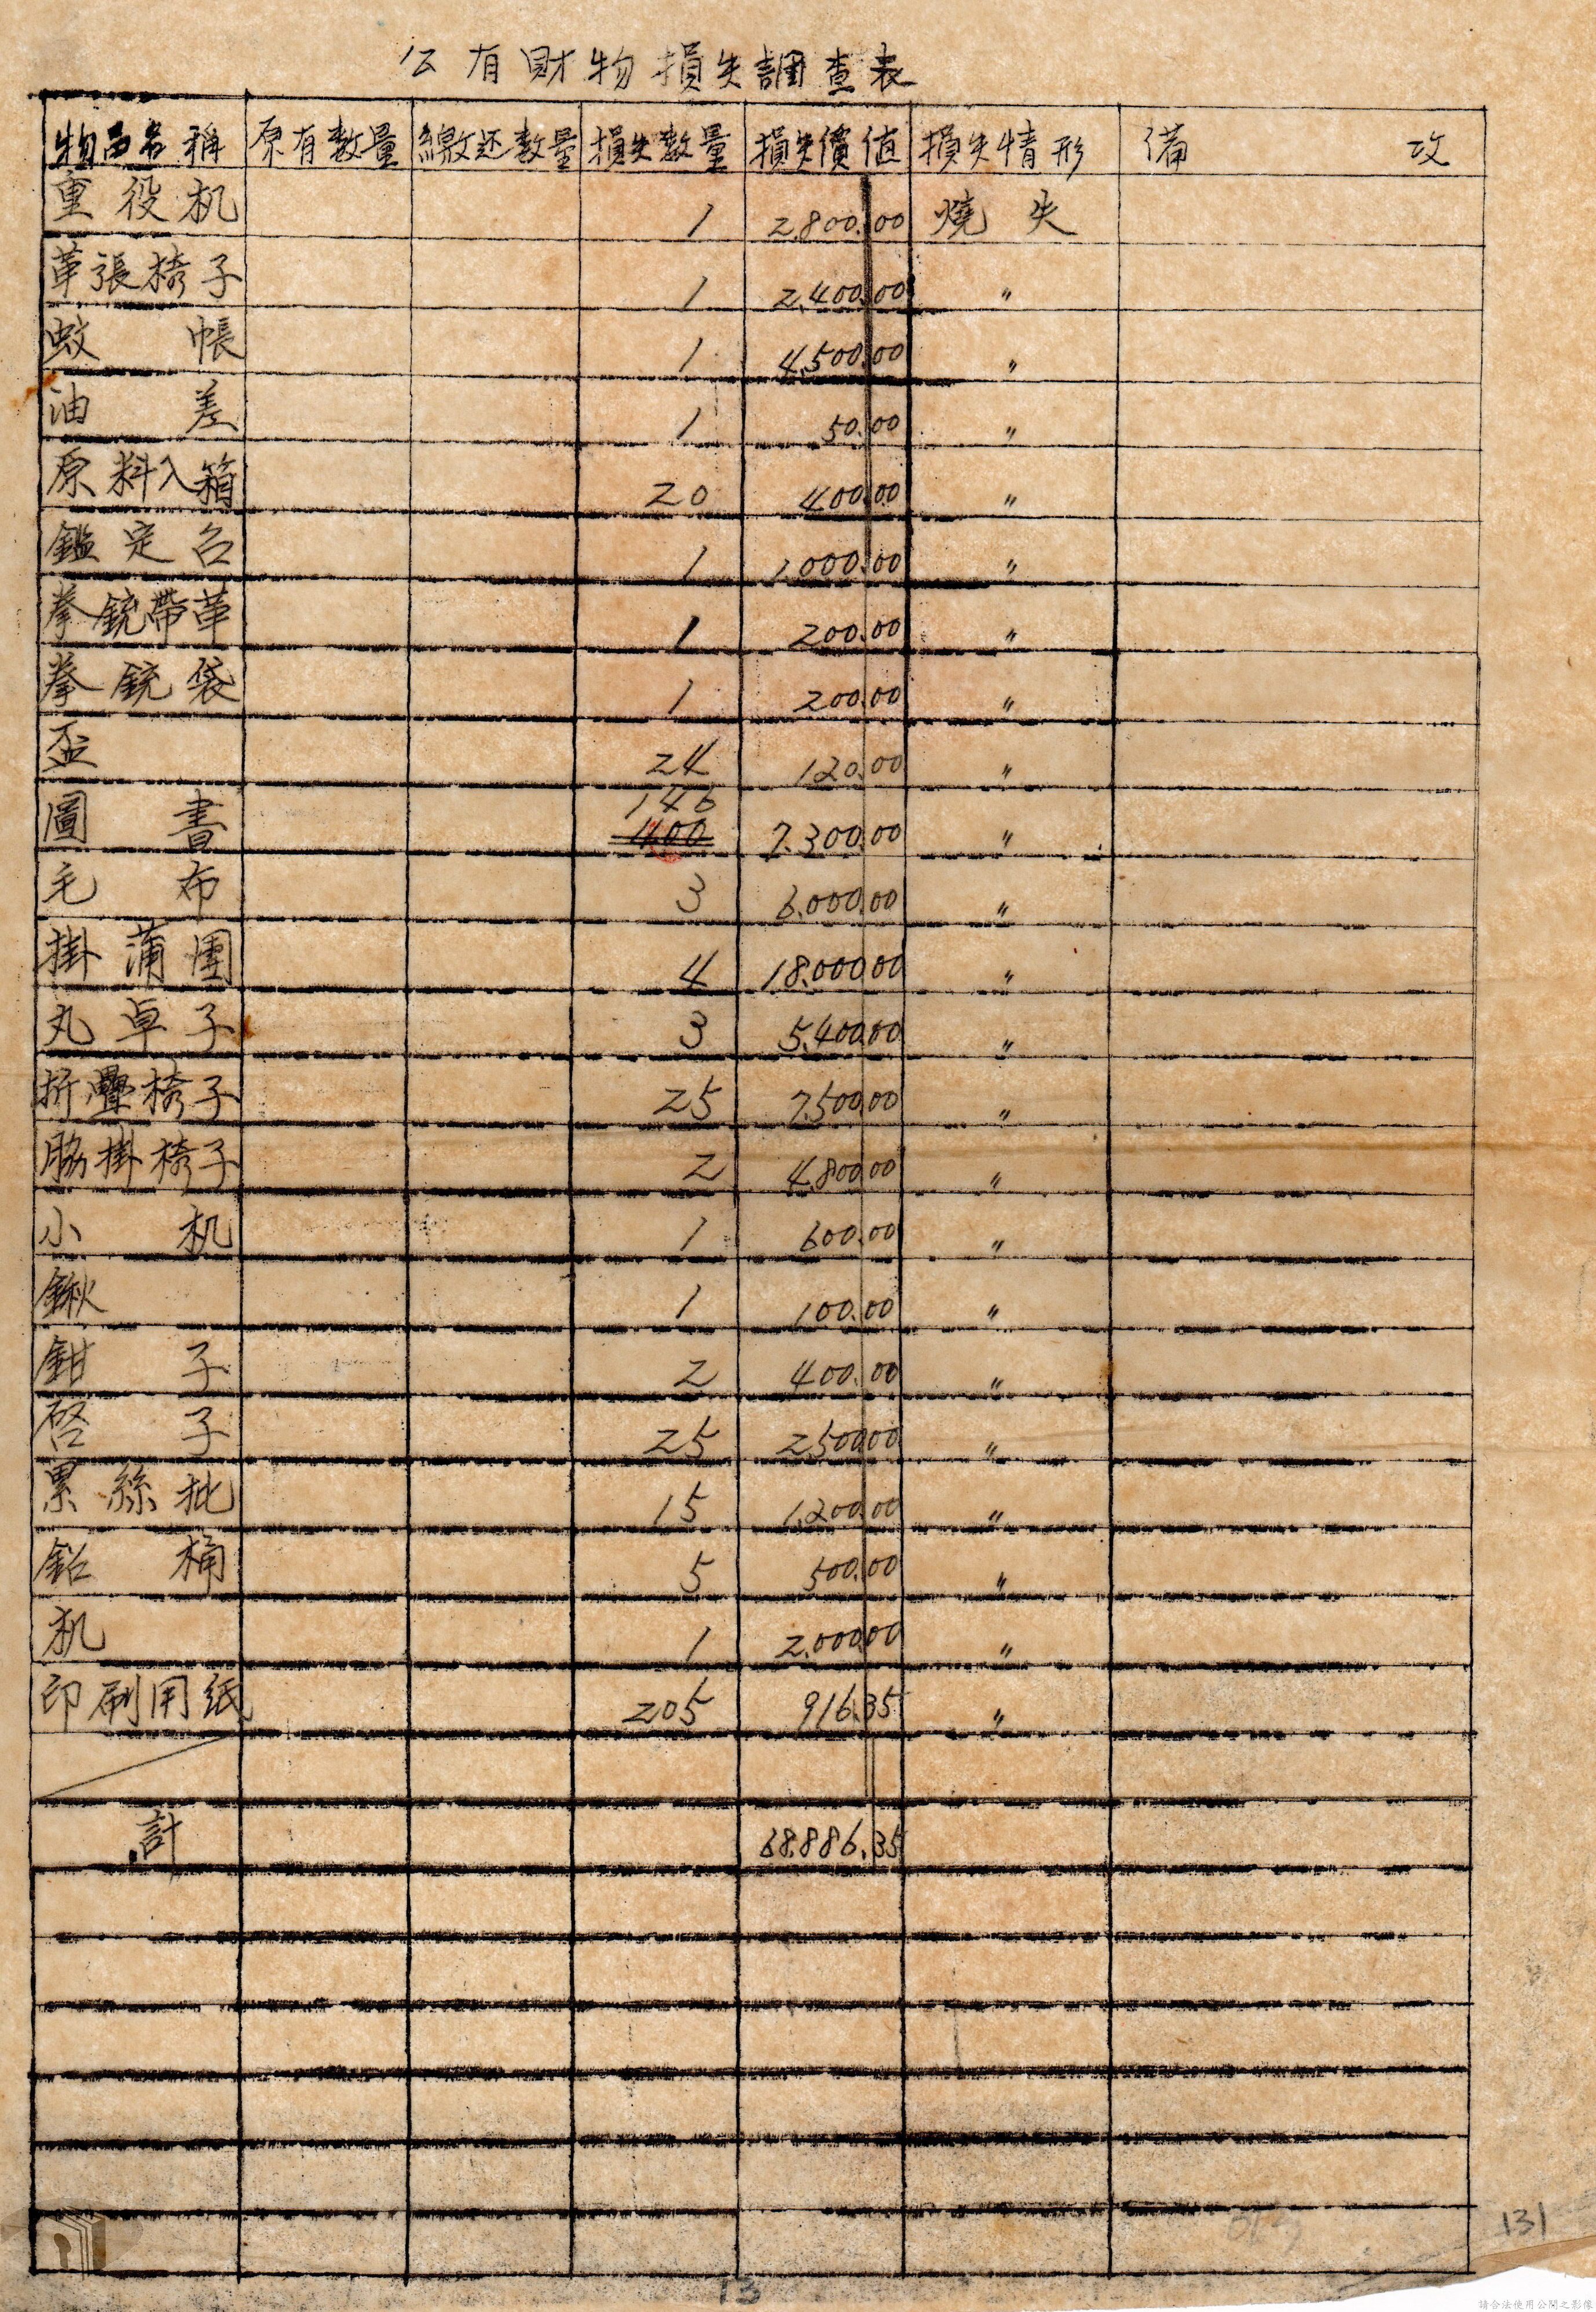 公有財物損失調查表
物品名稱 原有數量 繳还數量 損失數量 損失價值 損失情形 備 攷
重役机 1 2.800.00 燒失
革張椅子 1 2.400.00 〃
蚊帳 1 4.500.00 〃
油差 1 50.00 〃
原料入箱 20 400.00 〃
鑑定台 1 1.000.00 〃
拳銃帶革 1 200.00 〃
拳銃袋 1 200.00 〃
盃 24 120.00 〃
圖書 146 7.300.00 〃
毛布 3 6.000.00 〃
掛蒲團 4 18.000.00 〃
丸卓子 3 5.400.00 〃
折疊椅子 25 7.500.00 〃
脇掛椅子 2 4.800.00 〃
小机 1 600.00 〃
鍬 1 100.00 〃
鉗子 2 400.00 〃
啓子 25 2.500.00 〃
累絲批 15 1.200.00 〃
鉛桶 5 500.00 〃
机 1 2.000.00 〃
印刷用紙 205 916.35 〃
計 68.886.35
131
13
請合法使用公開之影像